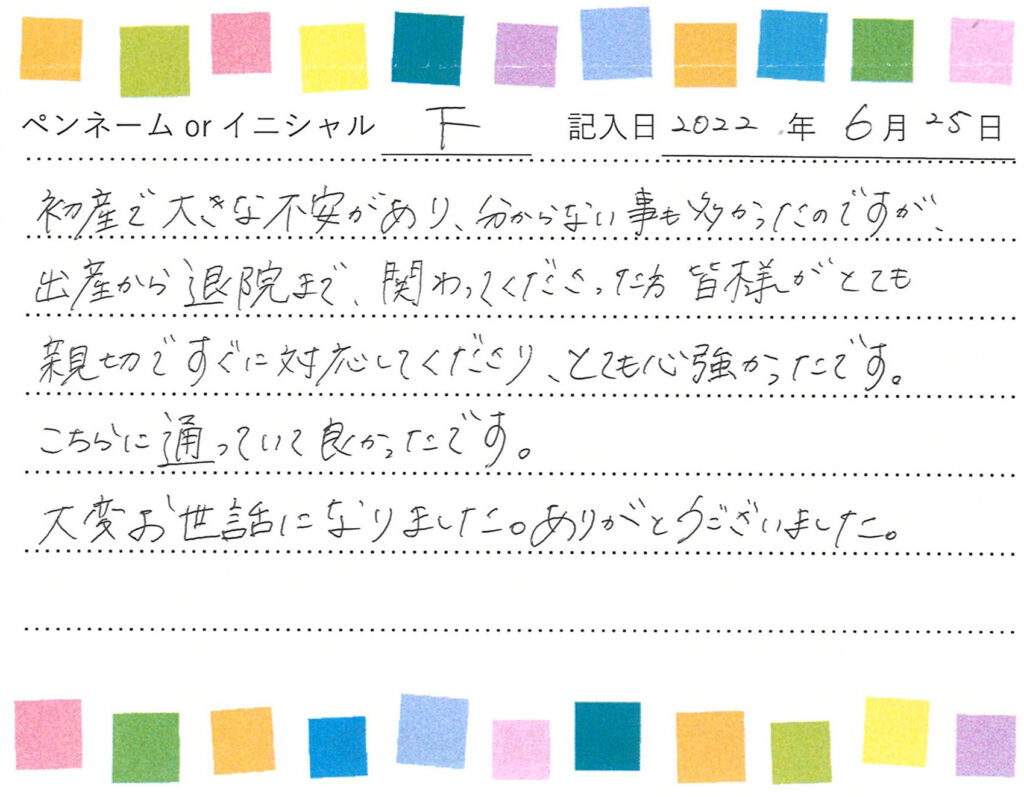 ペンネーム or イニシャル 下 記入日 2022 年 6月 25日
初産で大きな不安があり、分からない事も多かったのですが、
出産から退院まで、関わってくださった方 皆様がとても
親切ですぐに対応してくださり、とても心強かったです。
こちらに通っていて良かったです。
大変お世話になりました。ありがとうございました。